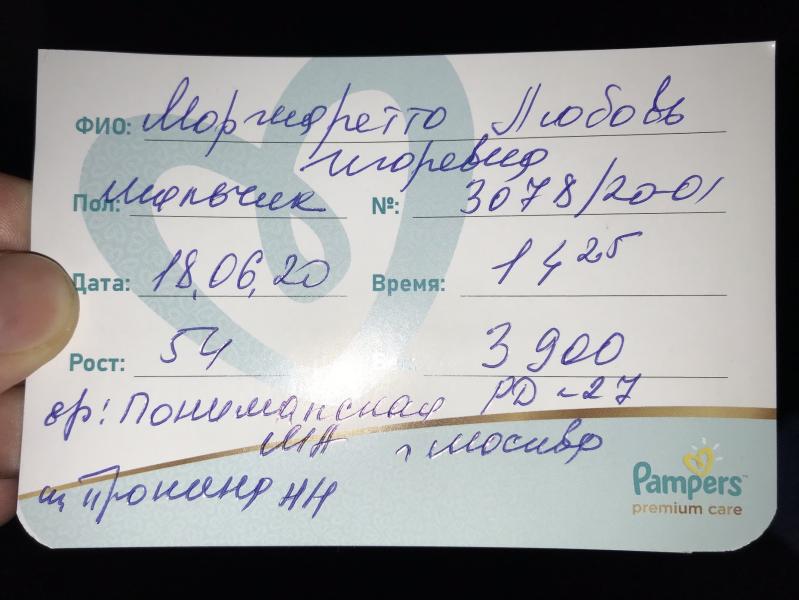 ФИО: Моргжаретто Любовь
Игоревна
Пол: мальчик №: 3078/20-01
Дата: 18.06.20 Время: 14 25
Рост: 54 3 900
вр: РД-27
г Москва
Пронина НН
Pampers
premium care